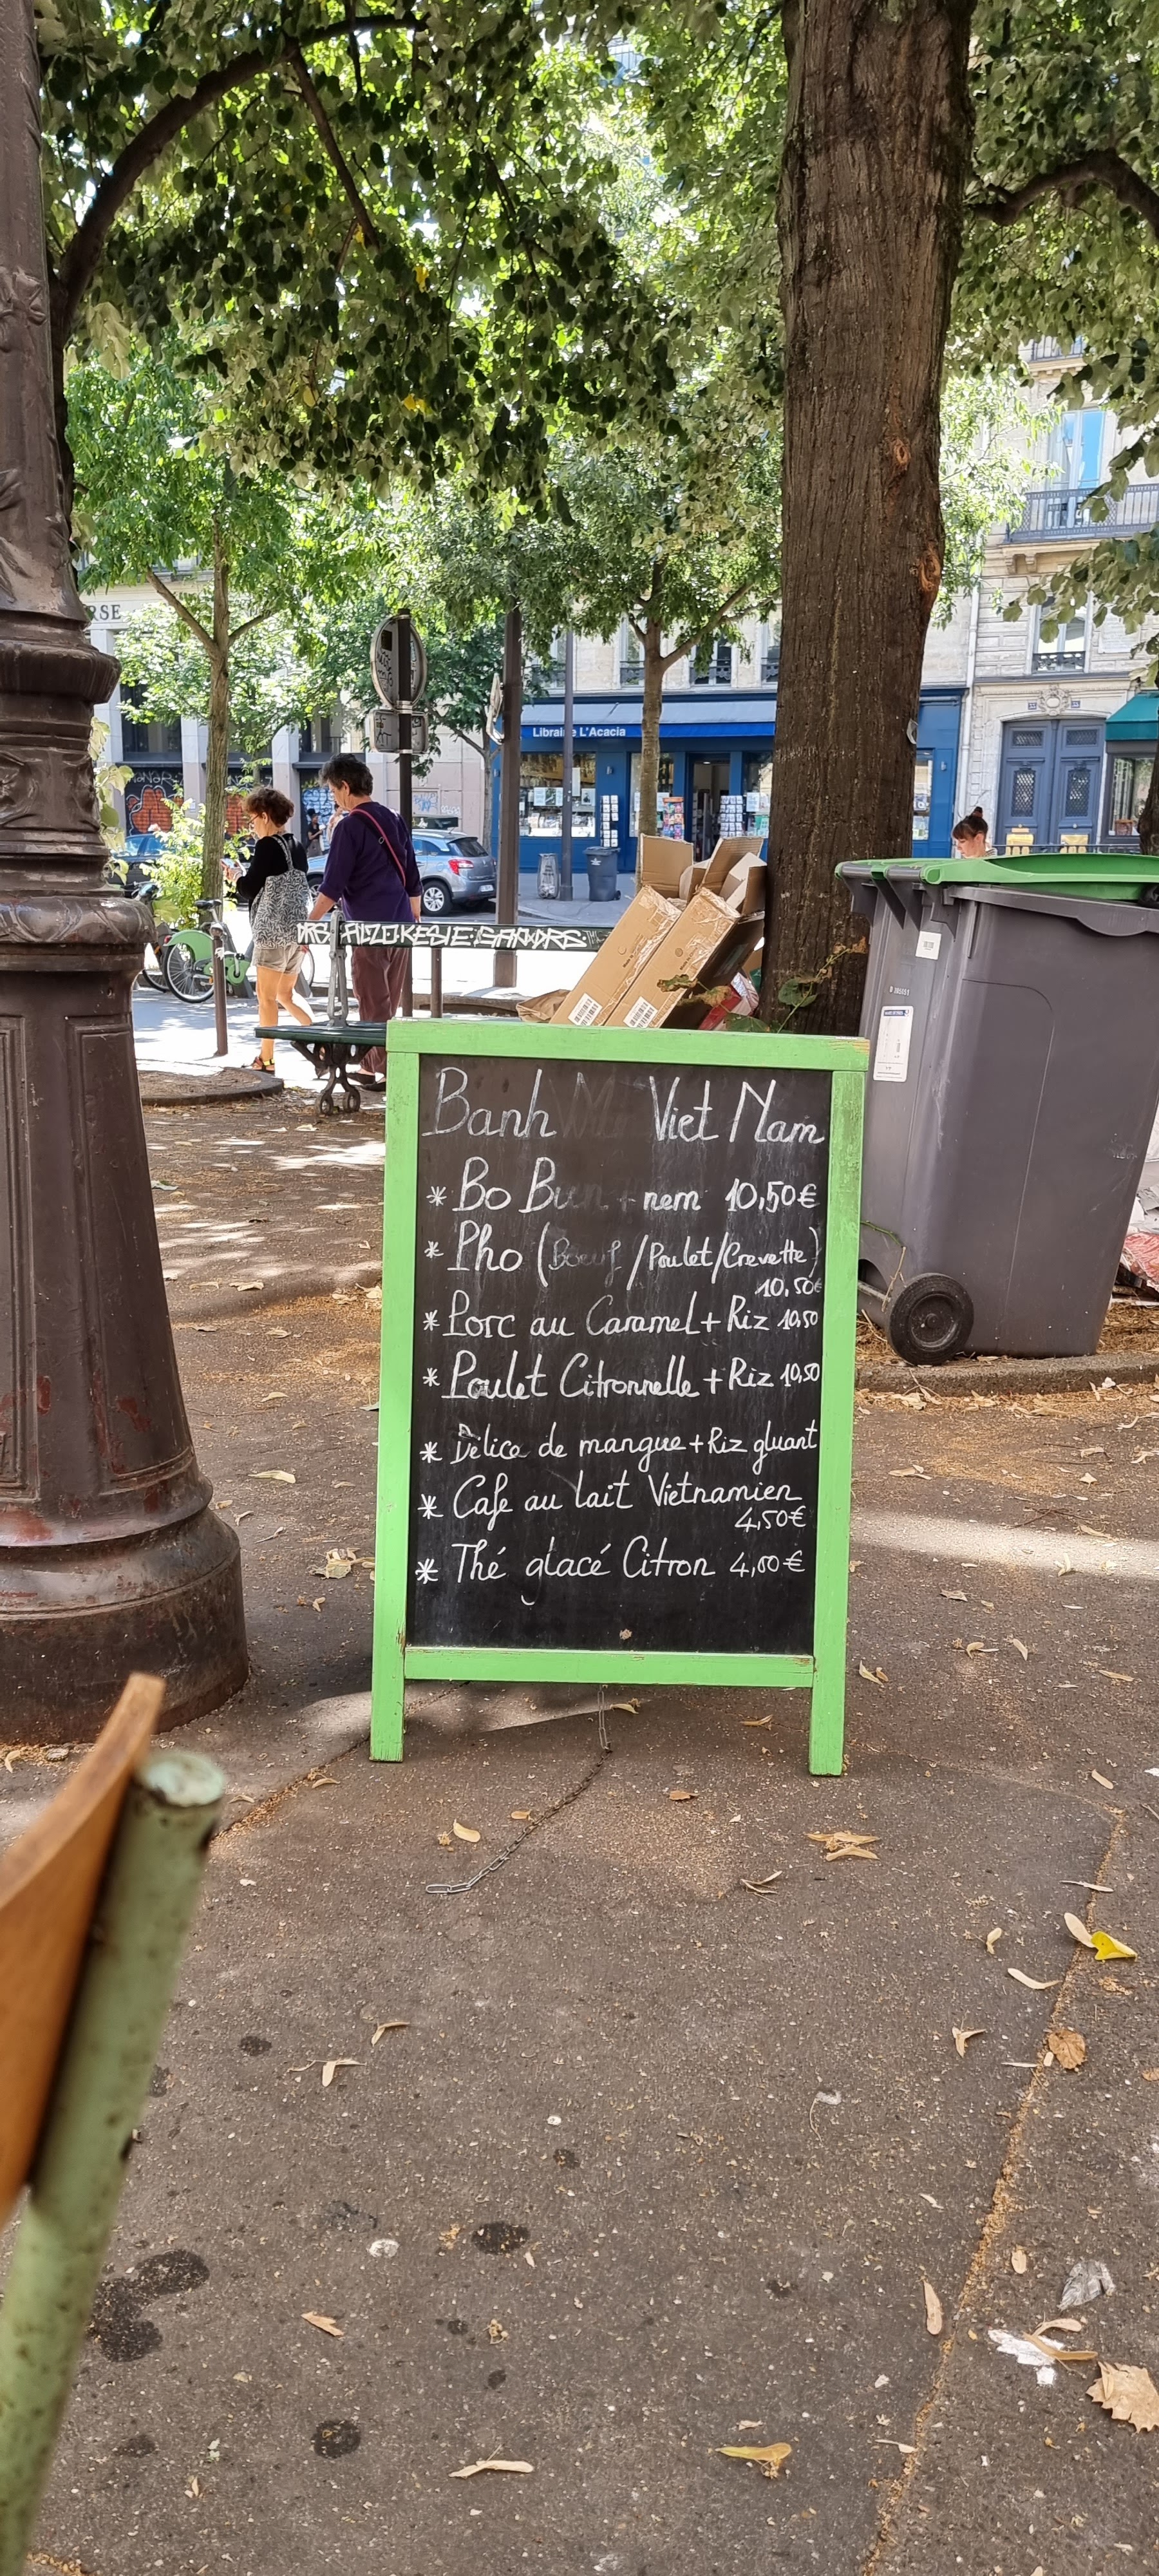 RSE
Librairie L'Acacia
Banh Mi Viet Nam
* Bo Bun + nem 10,50€
* Pho (Boeuf / Poulet/Crevette)
10,50€
* Porc au Caramel + Riz 10,50
* Poulet Citronnelle + Riz 10,50
* Délice de mangue + Riz gluant
* Cafe au lait Vietnamien
4,50€
* Thé glacé Citron 4,00€